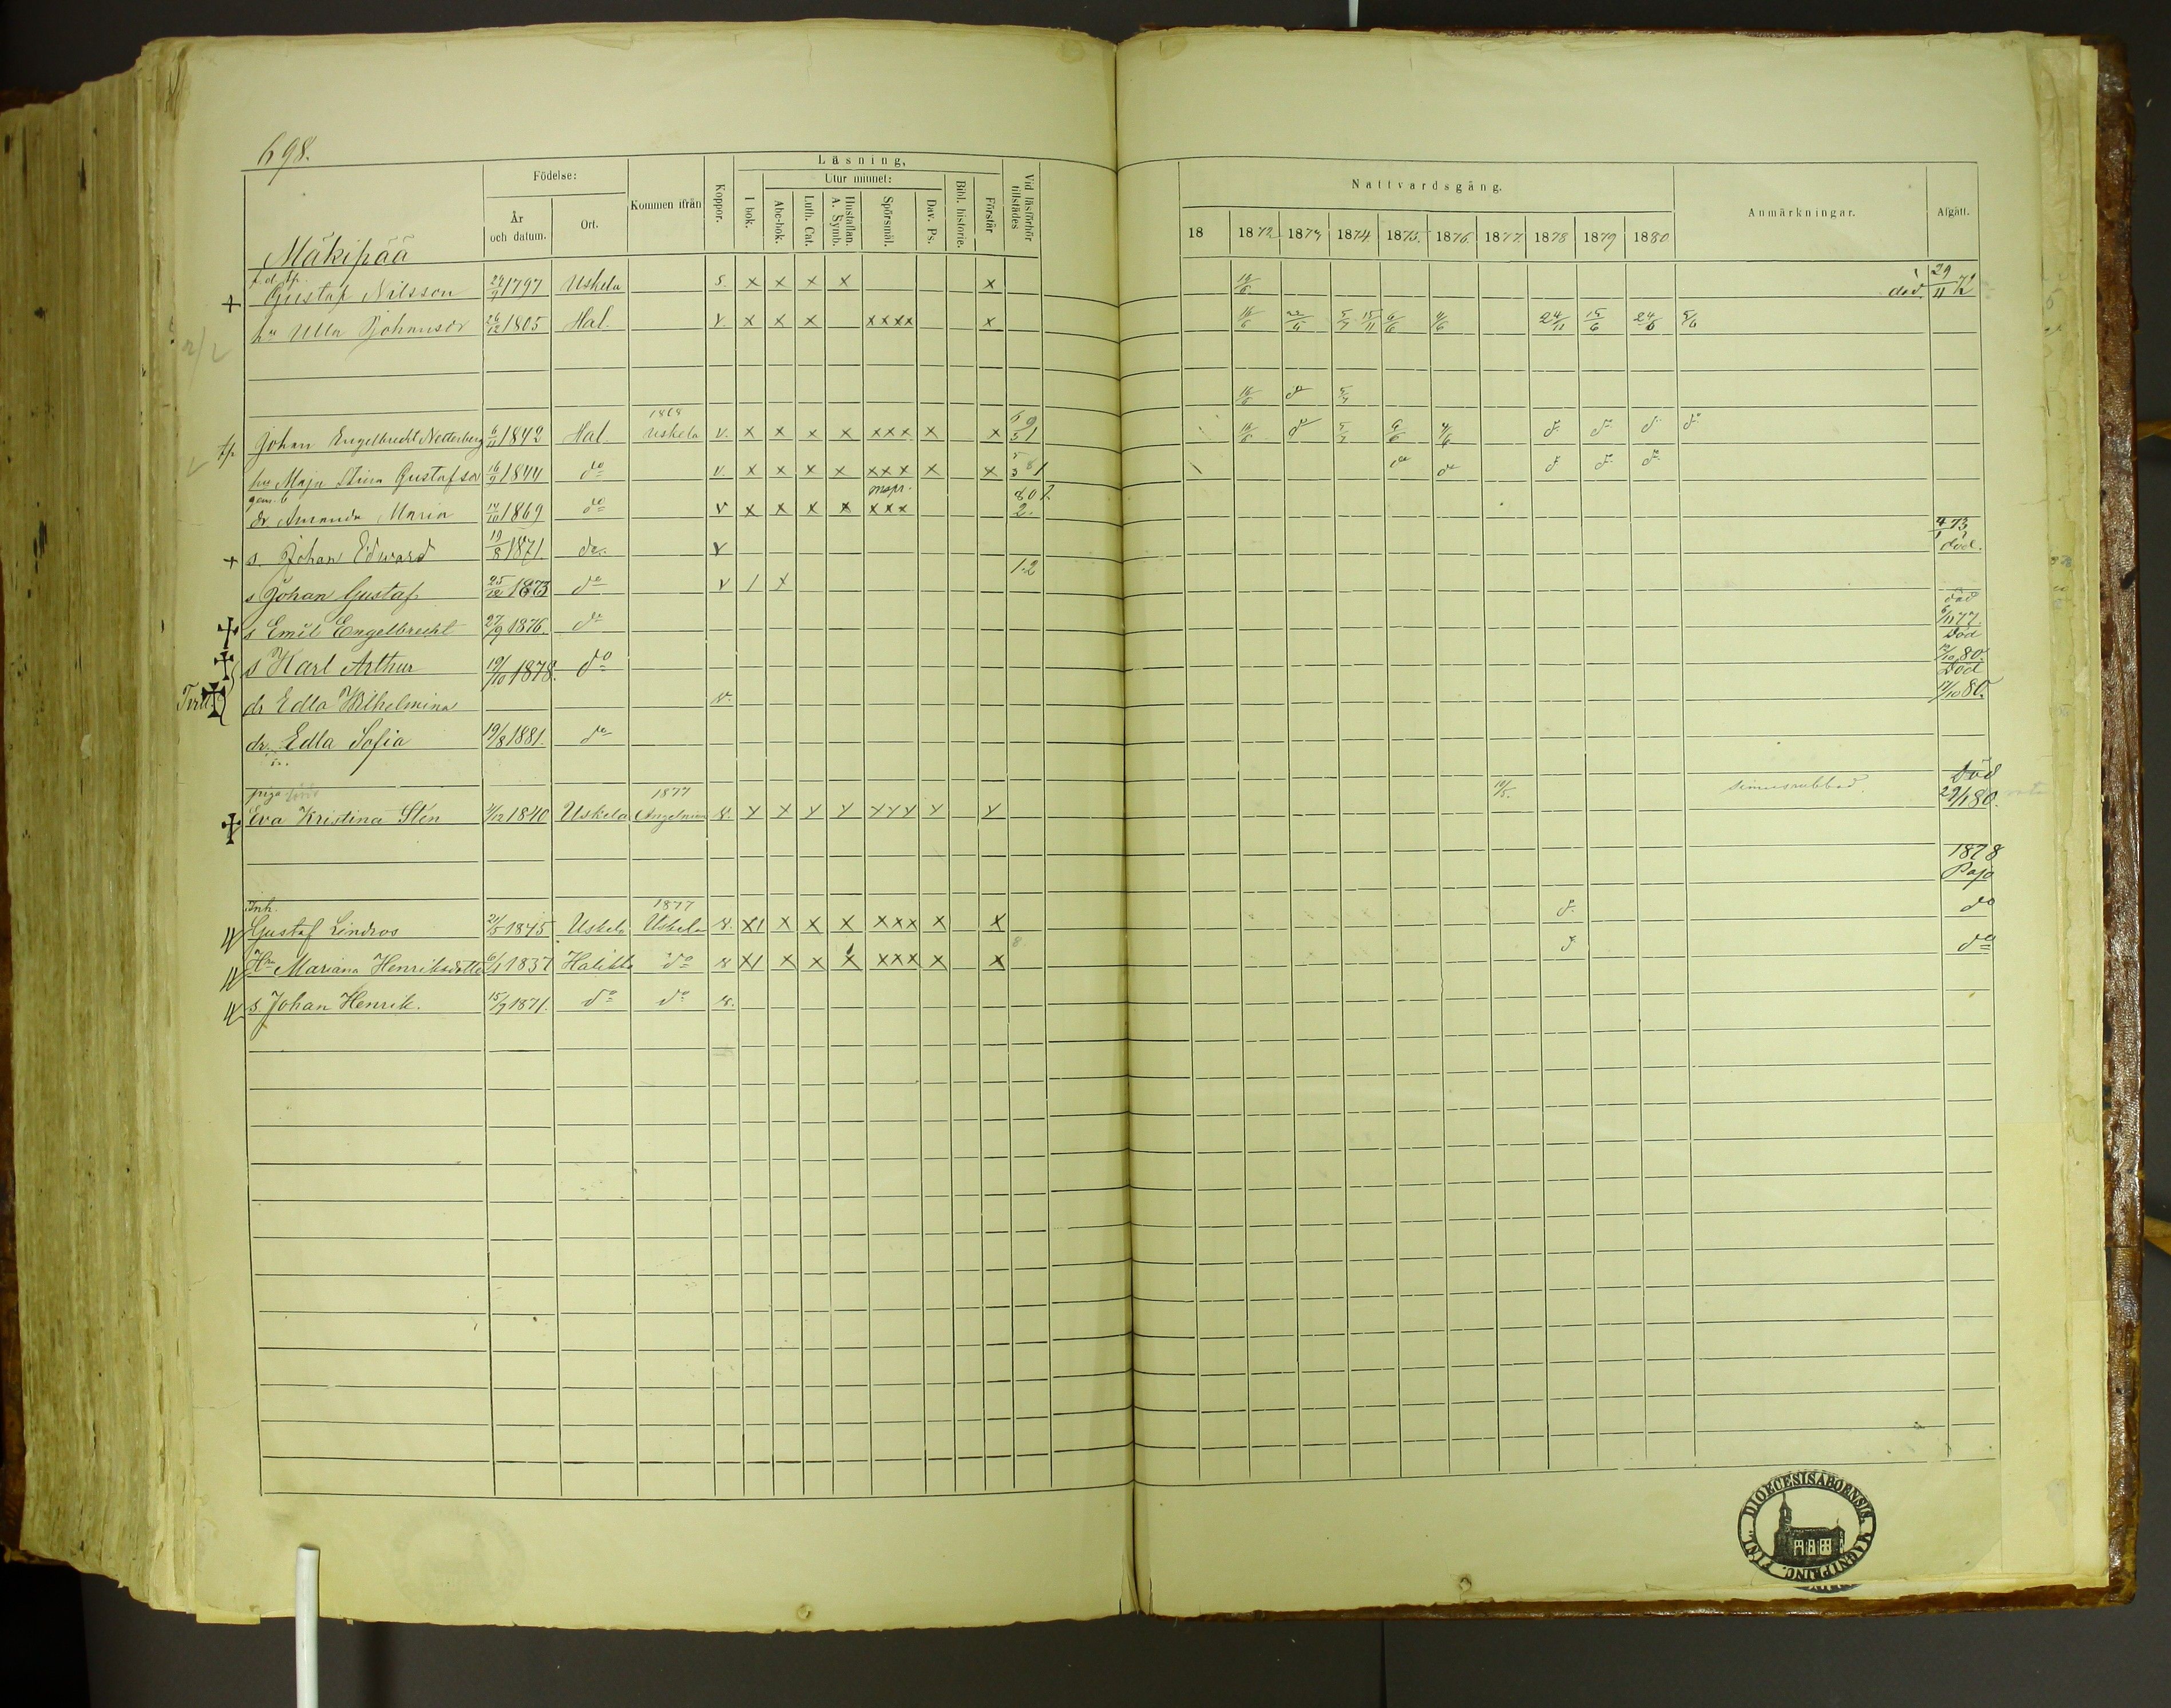 698.
Födelse: Kommen ifrån Koppor. Läsning, Vid läsförhör tillstädes Nattvardsgång. Anmärkningar. Afgått.
År och datum. Ort. I bok. Utur minnet: Bibl. historie. Förstår
Abc-bok. Luth. Cat. Hustaflan. A. Symb. Spörsmål. Dav. Ps.
18 1872 1873 1874 1875. 1876. 1877. 1878 1879 1880
Mäkipää
+ Gustaf Nilsson 24/9 1797 Uskela s. x x x x x 16/6 död 29/11 72
hu Ulla Johansdr 26/12 1805 Hal. v. x x x xxxx x 16/6 5/7 15/11 6/6 4/6 24/11 15/6 24/6 5/6
16/6 do 5/7
1868
Johan Engelbrecht Netterberg 6/11 1842 Hal. Uskela v. x x x x xxx x x 16/6 do 5/7 6/6 4/6 do do do do
hu Maja Stina Gustafsdr 16/9 1844 do v. x x x x xxx x x do do do do do
dr Amanda Maria 14/10 1869 do v x x x x xxx 2.
+ s. Johan Edward 19/8 1871 do. v 4/1 73 död.
s Johan Gustaf 25/12 1873 do v 1 x 1.2
s Emil Engelbrecht 27/9 1876. do död 6/11 77.
s Karl Arthur 19/10 1878. do Död 12/10 80.
Tvill. dr Edla Wilhelmina v. Död 17/10 80.
dr. Edla Sofia 19/8 1881. do
piga 1877 Död
Eva Kristina Sten 4/12 1840 Uskela Angelniemi v. x x x x xxx x x 19/5. sinnesrubbad. 29/1 80.
1878 Pajo
Inh. 1877
Gustaf Lindros 21/5 1845 Uskela Uskela v. x1 x x x xxx x x do do
Hu Mariana Henriksdotter 6/1 1837 Halikko do v x1 x x x xxx x x do do
s. Johan Henrik. 15/9 1871. do do v.
DIOECESIS ABOENSIS MAGNI PRINC. FINL.